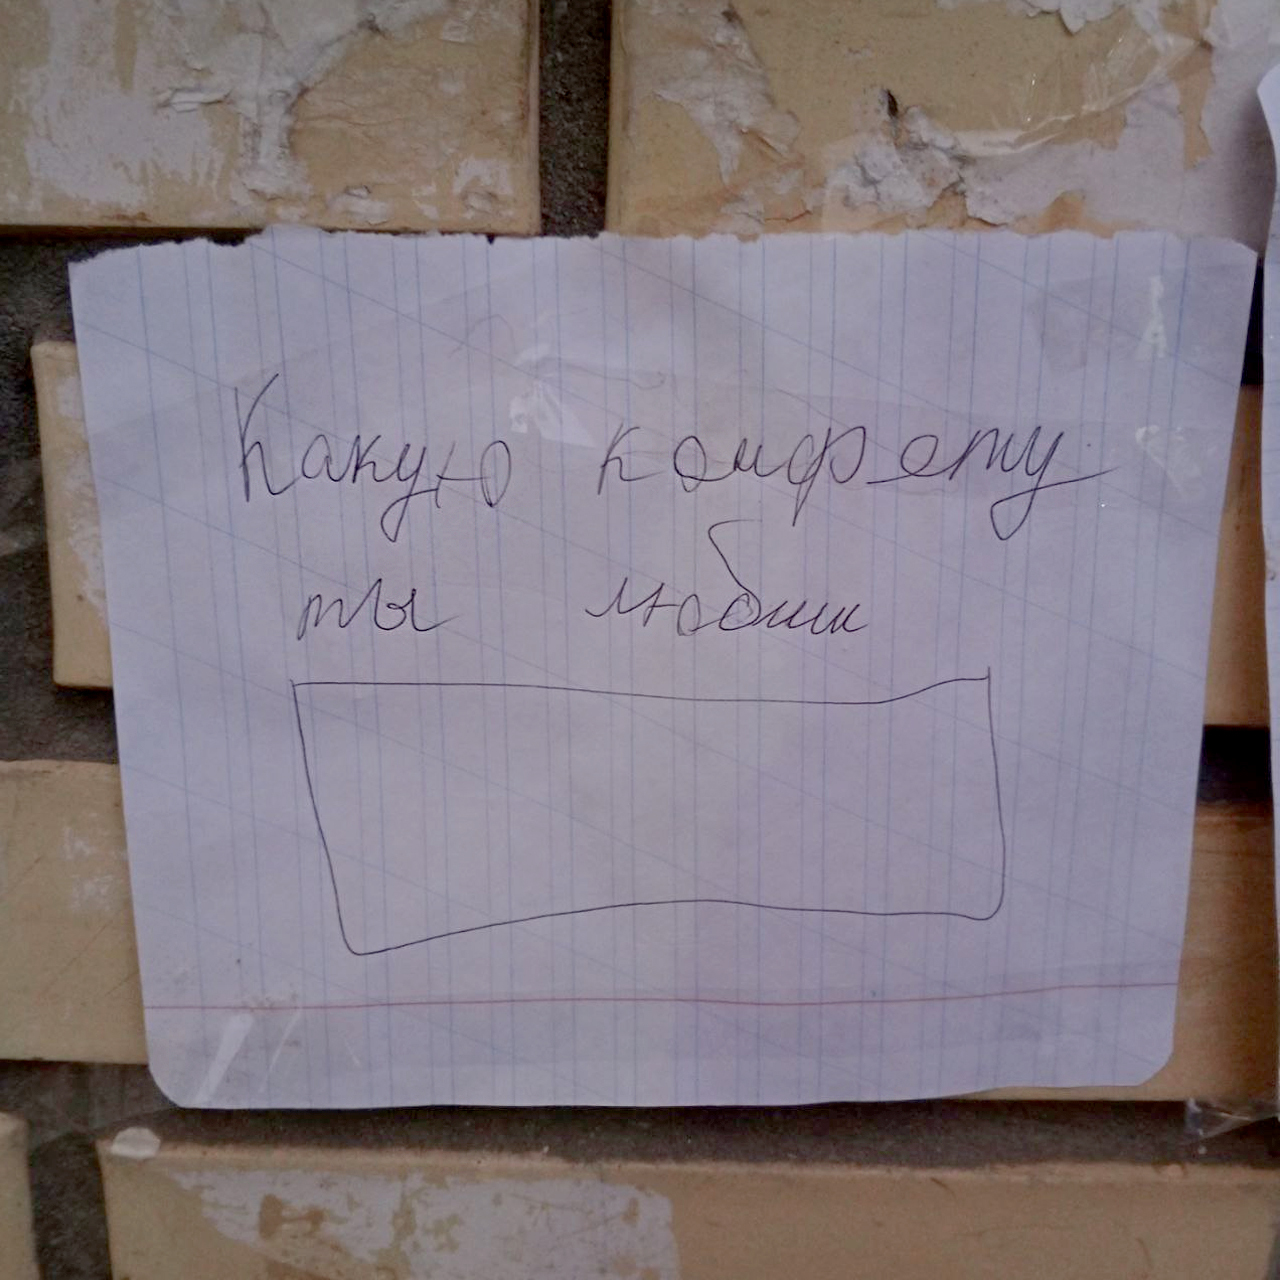 Какую конфету
ты любиш